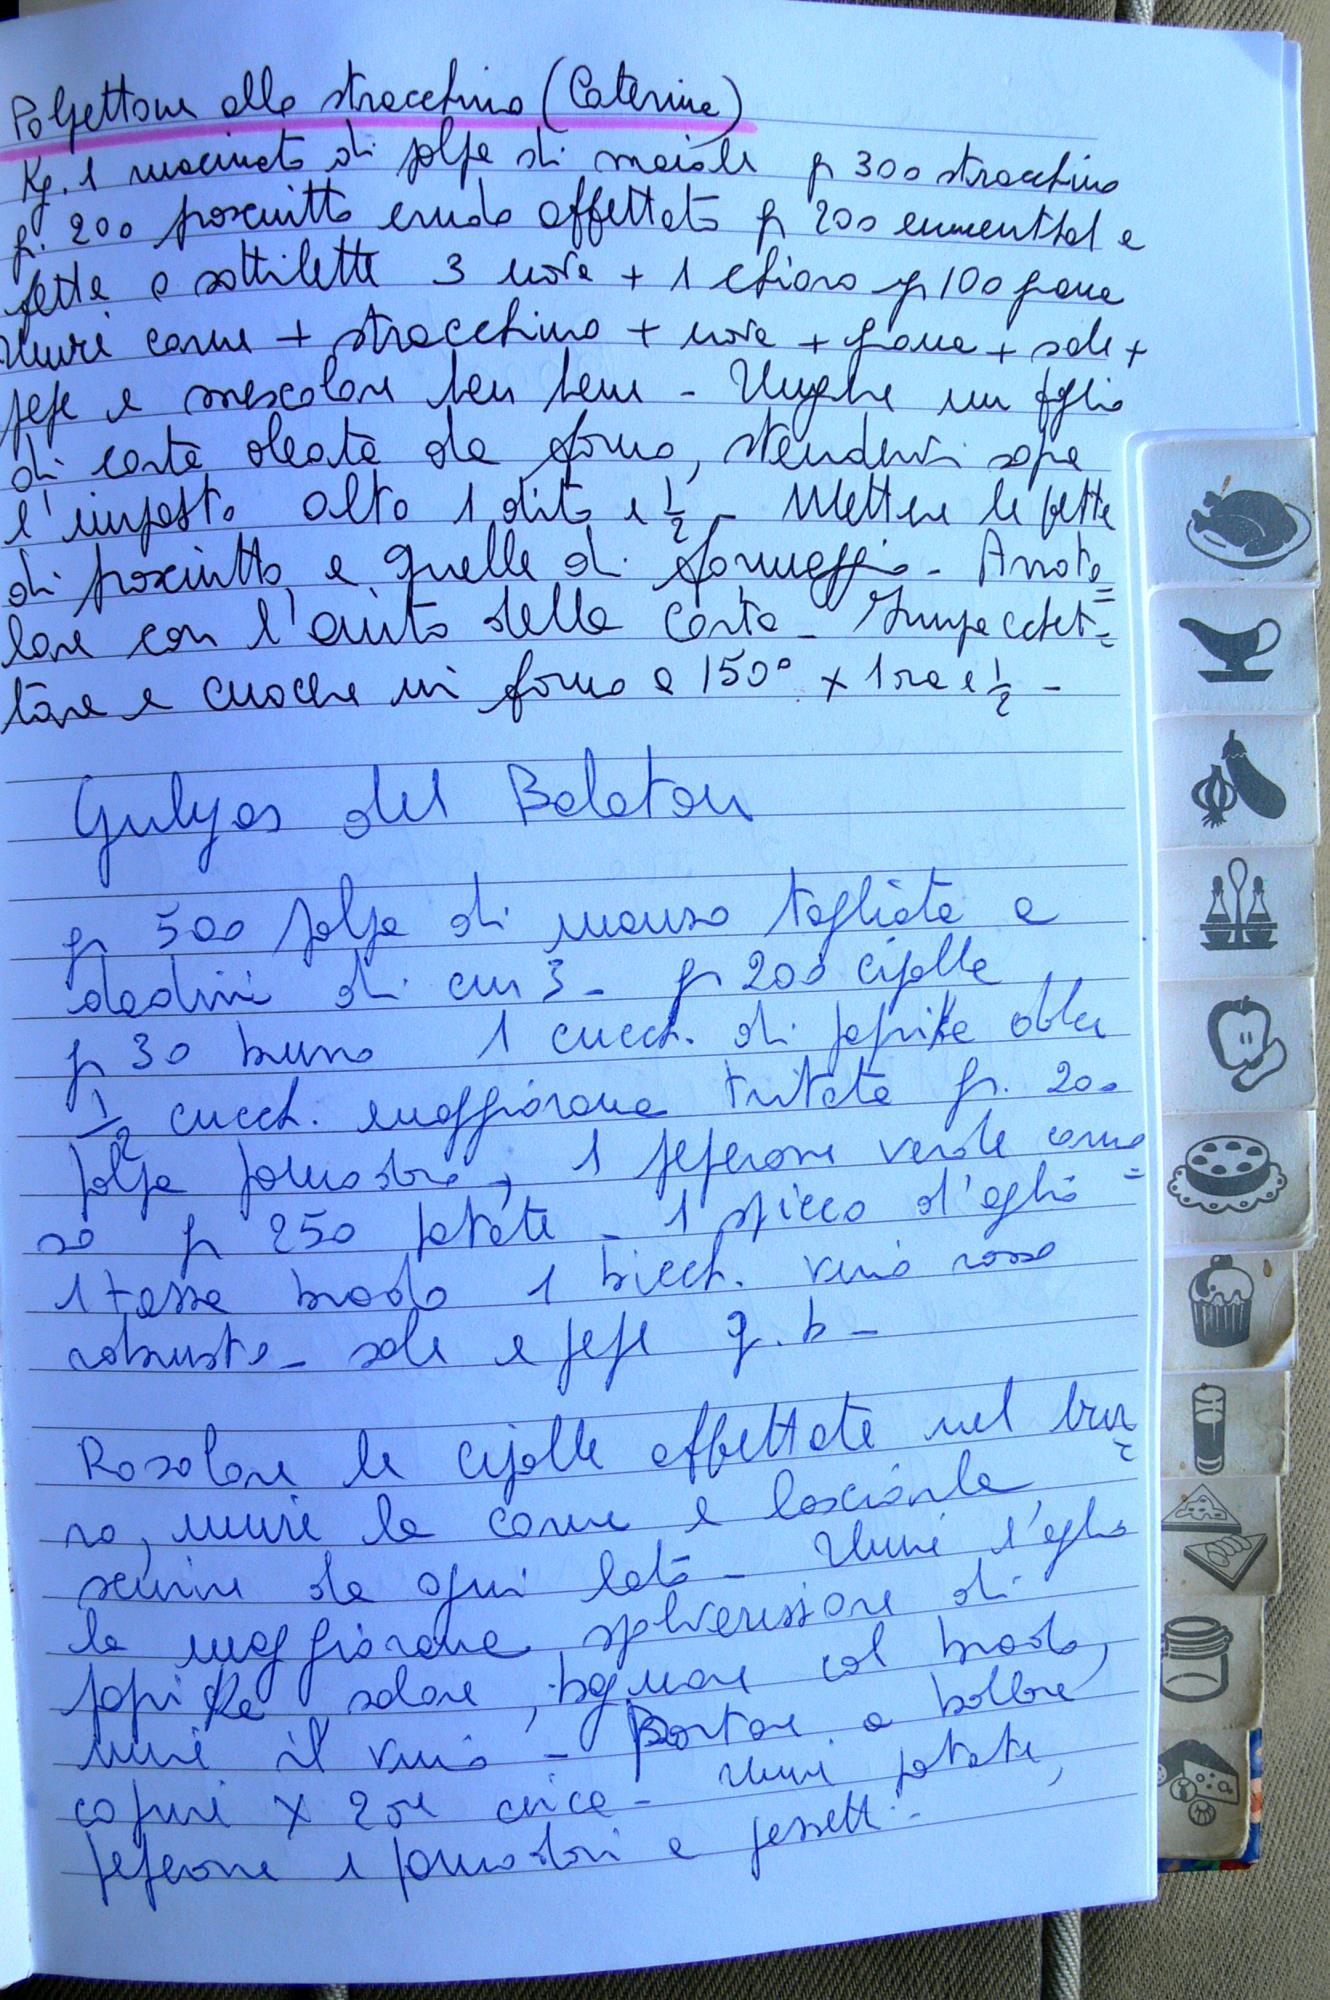 Polpettone allo stracchino (Caterina)
Kg. 1 macinato di polpa di maiale g 300 stracchino
g. 200 prosciutto crudo affettato g 200 emmenthal a
fette o sottilette 3 uova + 1 chiara g 100 pane
Unire carne + stracchino + uova + pane + sale +
pepe e mescolare ben bene - Ungere un foglio
di carta oleata da forno, stendervi sopra
l'impasto alto 1 dito e 1/2 - Mettere le fette
di prosciutto e quelle di formaggio - Arroto=
lare con l'aiuto della carta - Impacchet=
tare e cuocere in forno a 150° x 1 ora e 1/2 -
Gulyas del Balaton
g 500 polpa di manzo tagliata a
dadini di cm 3 - g 200 cipolle
g 30 burro 1 cucch. di paprika dolce
1/2 cucch. maggiorana tritata g. 200
polpa pomodoro, 1 peperone verde carno=
so g 250 patate - 1 spicco d'aglio
1 tazza brodo 1 bicch. vino rosso
robusto - sale e pepe q.b -
Rosolare le cipolle affettate nel bur=
ro, unire la carne e lasciarla
scurire da ogni lato - Unire l'aglio
la maggiorana spolverizzare di
paprika salare, bagnare col brodo,
unire il vino - Portare a bollore
coprire x 2 ore circa - Unire patate,
peperone e pomodori a pezzetti -